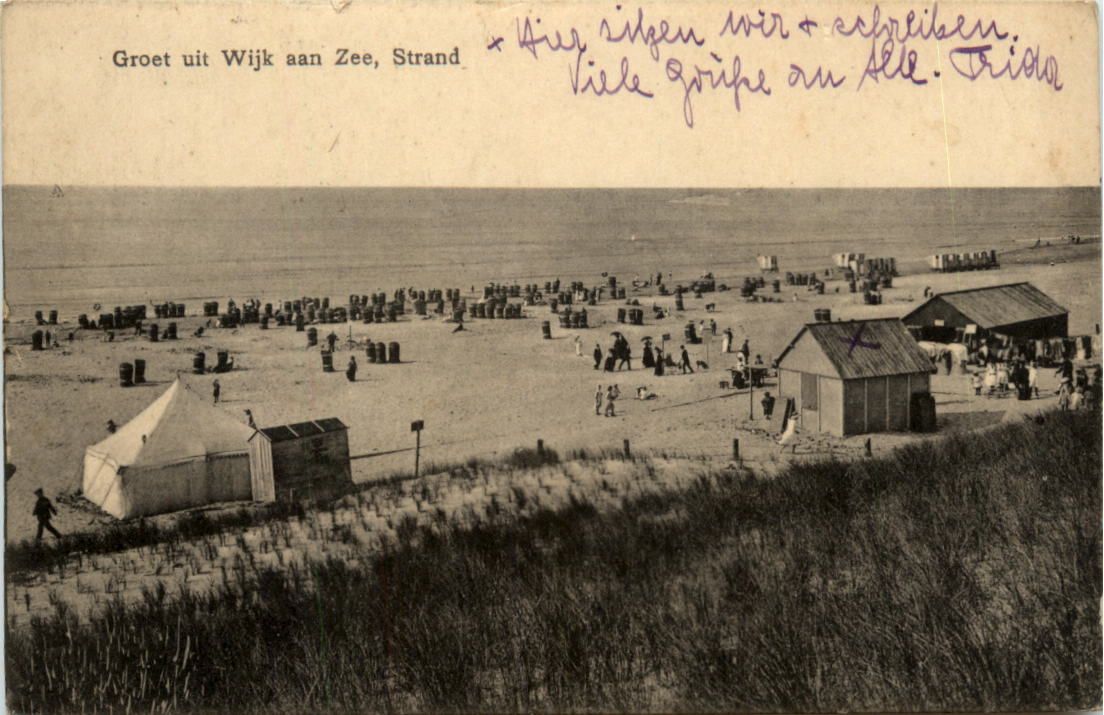 Groet uit Wijk aan Zee, Strand
× Hier sitzen wir + schreiben.
Viele Grüße an Alle. Frida
×